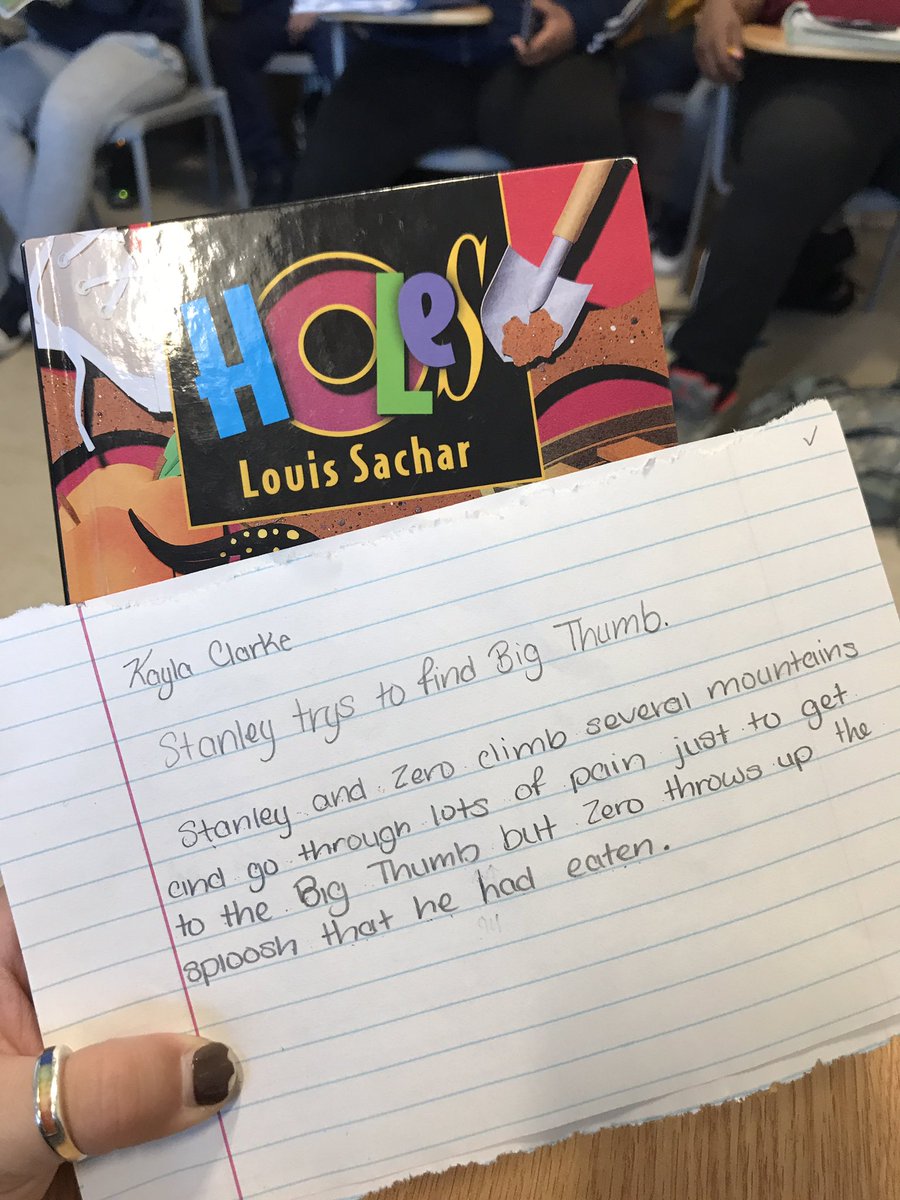 HOLeS
Louis Sachar
Kayla Clarke
Stanley trys to find Big Thumb.
Stanley and Zero climb several mountains
and go through lots of pain just to get
to the Big Thumb but Zero throws up the
sploosh that he had eaten.